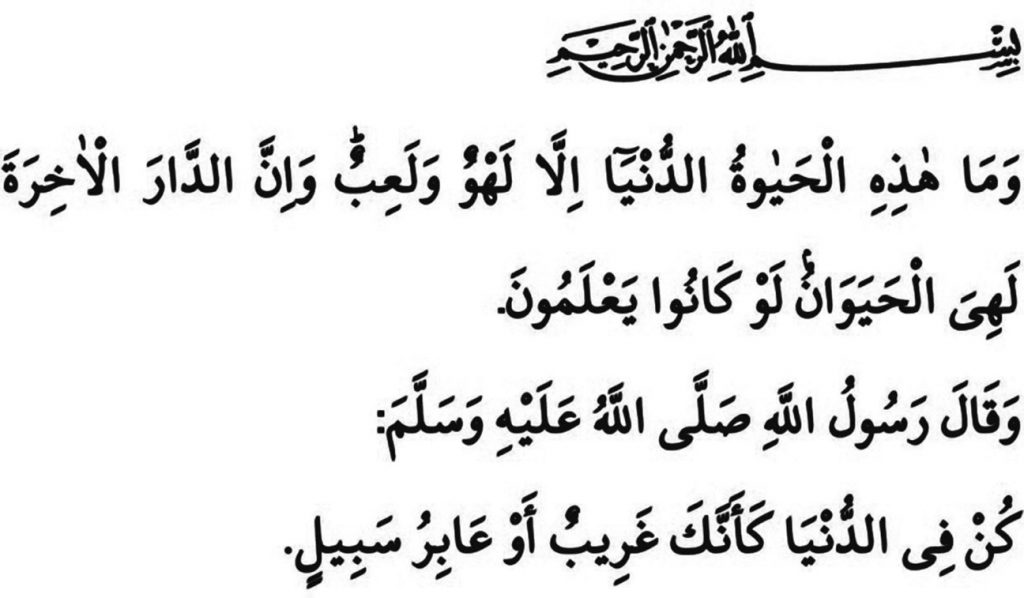 بِسْمِ اللهِ الرَّحْمٰنِ الرَّحِيمِ
وَمَا هٰذِهِ الْحَيٰوةُ الدُّنْيَٓا اِلَّا لَهْوٌ وَلَعِبٌۜ وَاِنَّ الدَّارَ الْاٰخِرَةَ
لَهِىَ الْحَيَوَانُۢ لَوْ كَانُوا يَعْلَمُونَ.
وَقَالَ رَسُولُ اللَّهِ صَلَّى اللَّهُ عَلَيْهِ وَسَلَّمَ:
كُنْ فِى الدُّنْيَا كَأَنَّكَ غَرِيبٌ أَوْ عَابِرُ سَبِيلٍ.